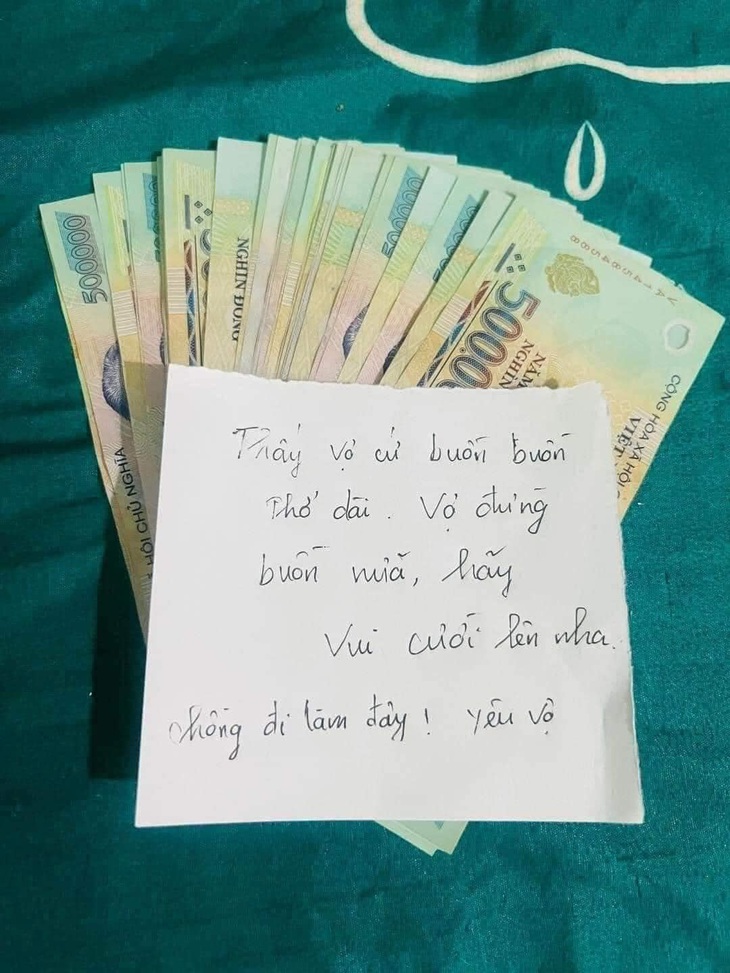 500000
NGHÌN ĐỒNG
500000
500000
VA14585488
NĂM
NGHÌN
CỘNG HÒA XÃ HỘI
VIỆT
HỘI CHỦ NGHĨA
Thấy vợ cứ buồn buồn
thở dài. Vợ đừng
buồn nữa, hãy
Vui cười lên nha.
chồng đi làm đây! yêu vợ